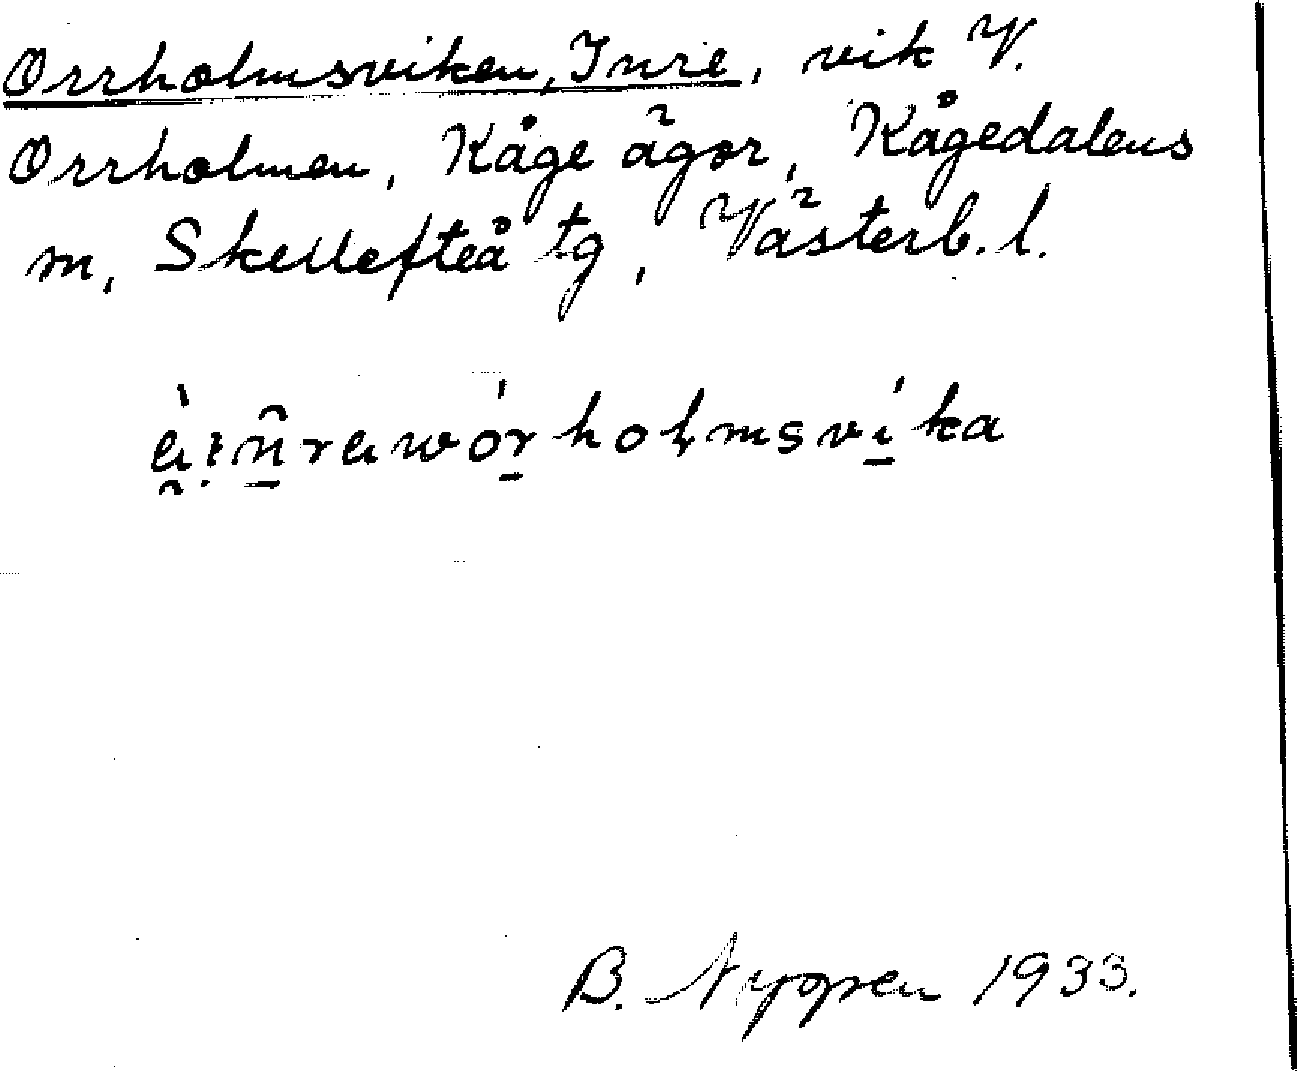 Orrholmsviken, Inre, vik V.
Orrholmen, Kåge ägor, Kågedalens
m, Skellefteå tg, Västerb. l.
B. Nygren 1933.